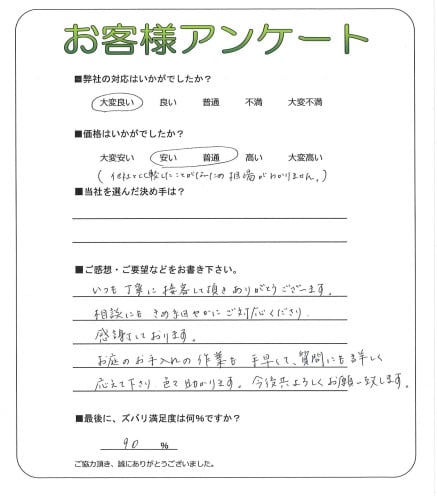 お客様アンケート
■弊社の対応はいかがでしたか？
大変良い 良い 普通 不満 大変不満
■価格はいかがでしたか？
大変安い 安い 普通 高い 大変高い
(他社と比較したことがないため相場がわかりません。)
■当社を選んだ決め手は？
■ご感想・ご要望などをお書き下さい。
いつも丁寧に接客して頂きありがとうございます。
相談にもきめ細やかにご対応くださり
感謝しております。
お庭のお手入れの作業も手早くて、質問にも詳しく
応えて下さり 助かります。今後共よろしくお願い致します。
■最後に、ズバリ満足度は何%ですか？
90 %
ご協力頂き、誠にありがとうございました。